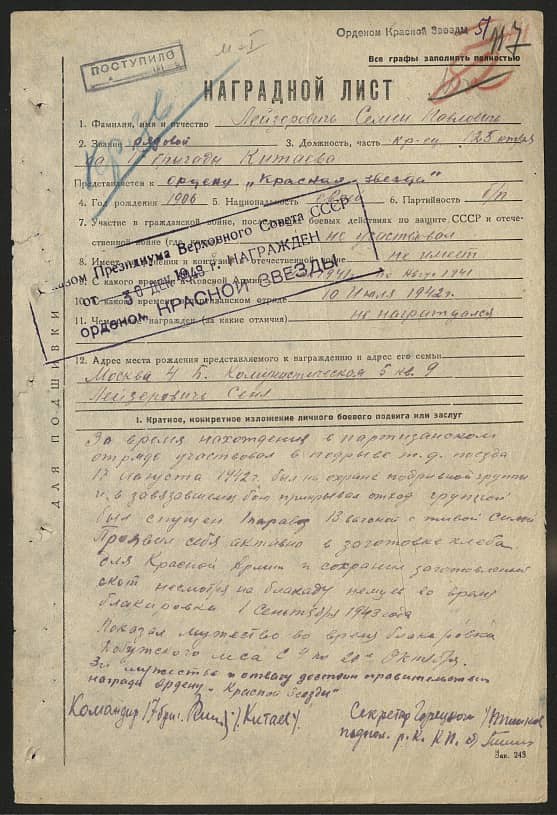 Орденом Красной Звезды 51
117
м-I
Все графы заполнять полностью
ПОСТУПИЛО
НАГРАДНОЙ ЛИСТ
1. Фамилия, имя и отчество Лейзерович Семен Павлович
2. Звание рядовой 3. Должность, часть кр-ец 125 отряда
бригады Китаева
Представляется к ордену „Красная звезда"
4. Год рождения 1906 5. Национальность 6. Партийность б/п
7. Участие в гражданской войне, последующих боевых действиях по защите СССР и отече-
ственной войне (где не участвовал
8. Имеет ранения и контузии в отечественной войне не имеет
9. С какого времени в Красной Армии 1941
10. С какого времени в партизанском отряде 10 Июля 1942г.
11. Чем ранее награжден (за какие отличия) не награждался
Указом Президиума Верховного Совета СССР
от 30 1948 г. НАГРАЖДЕН
орденом КРАСНОЙ ЗВЕЗДЫ
12. Адрес места рождения представляемого к награждению и адрес его семьи
Москва 4 Б. Комунистическая 5 кв. 9
Лейзерович Сеня
ДЛЯ ПОДШИВКИ
1. Краткое, конкретное изложение личного боевого подвига или заслуг
За время нахождения в партизанском
отряде участвовал в подрыве ж.д. поезда
17 Августа 1942г. был на охране подрывной группы
и в завязавшемся бою прикрывал отход группой
был спущен 1 паравоз 13 вагонов с живой силой
Проявил себя активно в заготовке хлеба
для Красной Армии и сохранил заготовленный
скот несмотря на блакаду немцев во время
блакировки 1 Сентября 1943 года
Показал мужество во время блакировки
леса с 4 по 20е Октября.
За мужество и отвагу достоин правительствен
награды Ордену „Красной Звезды"
Командир 17 бриг. /Китаев/
Секретарь Горецкого
подпол. р. К. КП. б)
Зак. 243